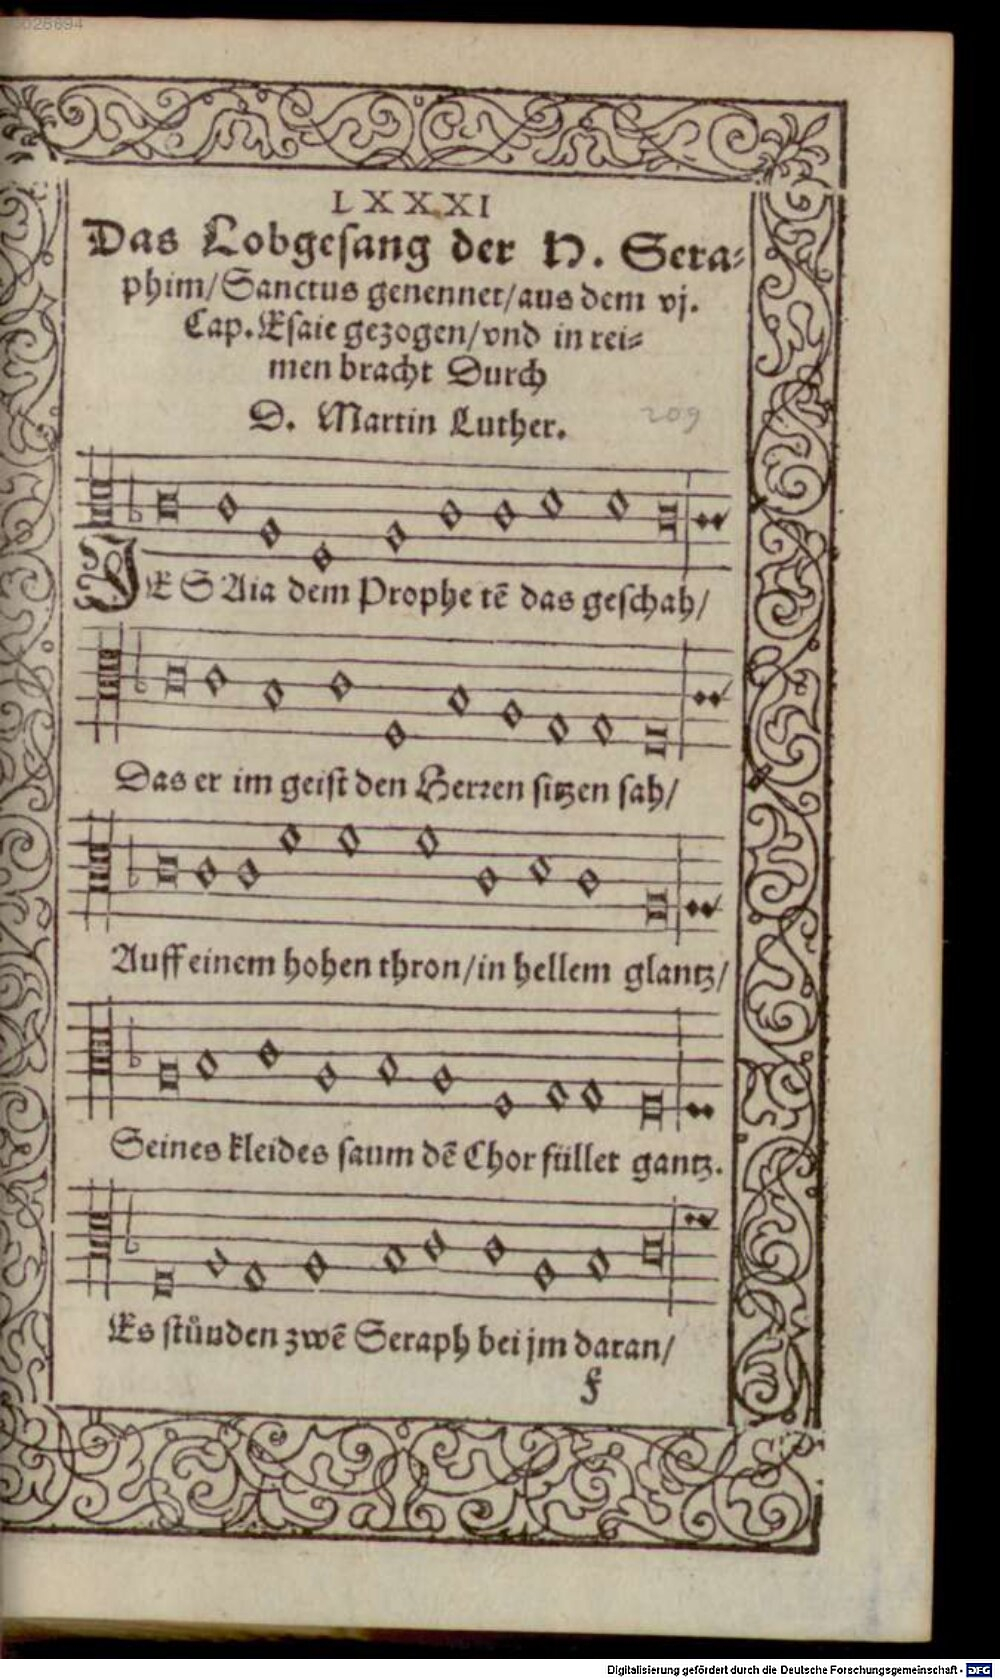 0026694
LXXXI
Das Lobgesang der H. Sera⸗
phim/Sanctus genennet/aus dem vj.
Cap. Esaie gezogen/vnd in rei⸗
men bracht Durch
D. Martin Luther.
209
JESAia dem Prophetē das geschah/
Das er im geist den Herren sitzen sah/
Auff einem hohen thron/in hellem glantz/
Seines kleides saum dē Chor füllet gantz.
Es stůnden zwē Seraph bei jm daran/
f
Digitalisierung gefördert durch die Deutsche Forschungsgemeinschaft - DFG